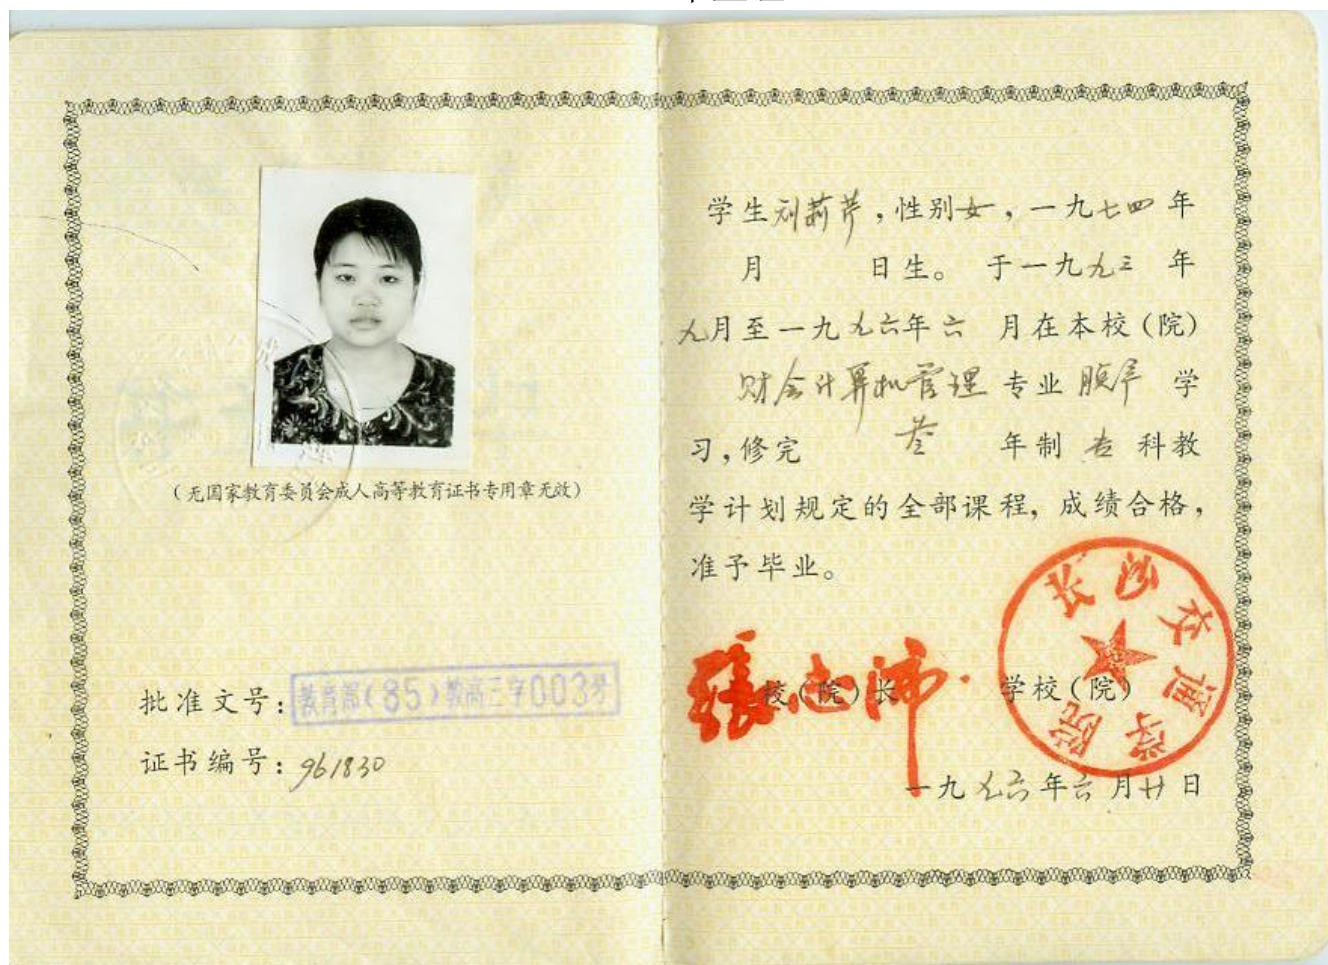 (无国家教育委员会成人高等教育证书专用章无效)
批准文号: 教育部(85)教高三字003号
证书编号: 961830
学生刘莉芹,性别女,一九七四年
月 日生。于一九九三 年
九月至一九九六年六 月在本校(院)
财会计算机管理 专业 脱产 学
习,修完 叁 年制 专 科教
学计划规定的全部课程,成绩合格,
准予毕业。
校(院)长
学校(院)
长沙交通学院
一九九六年六月廿日